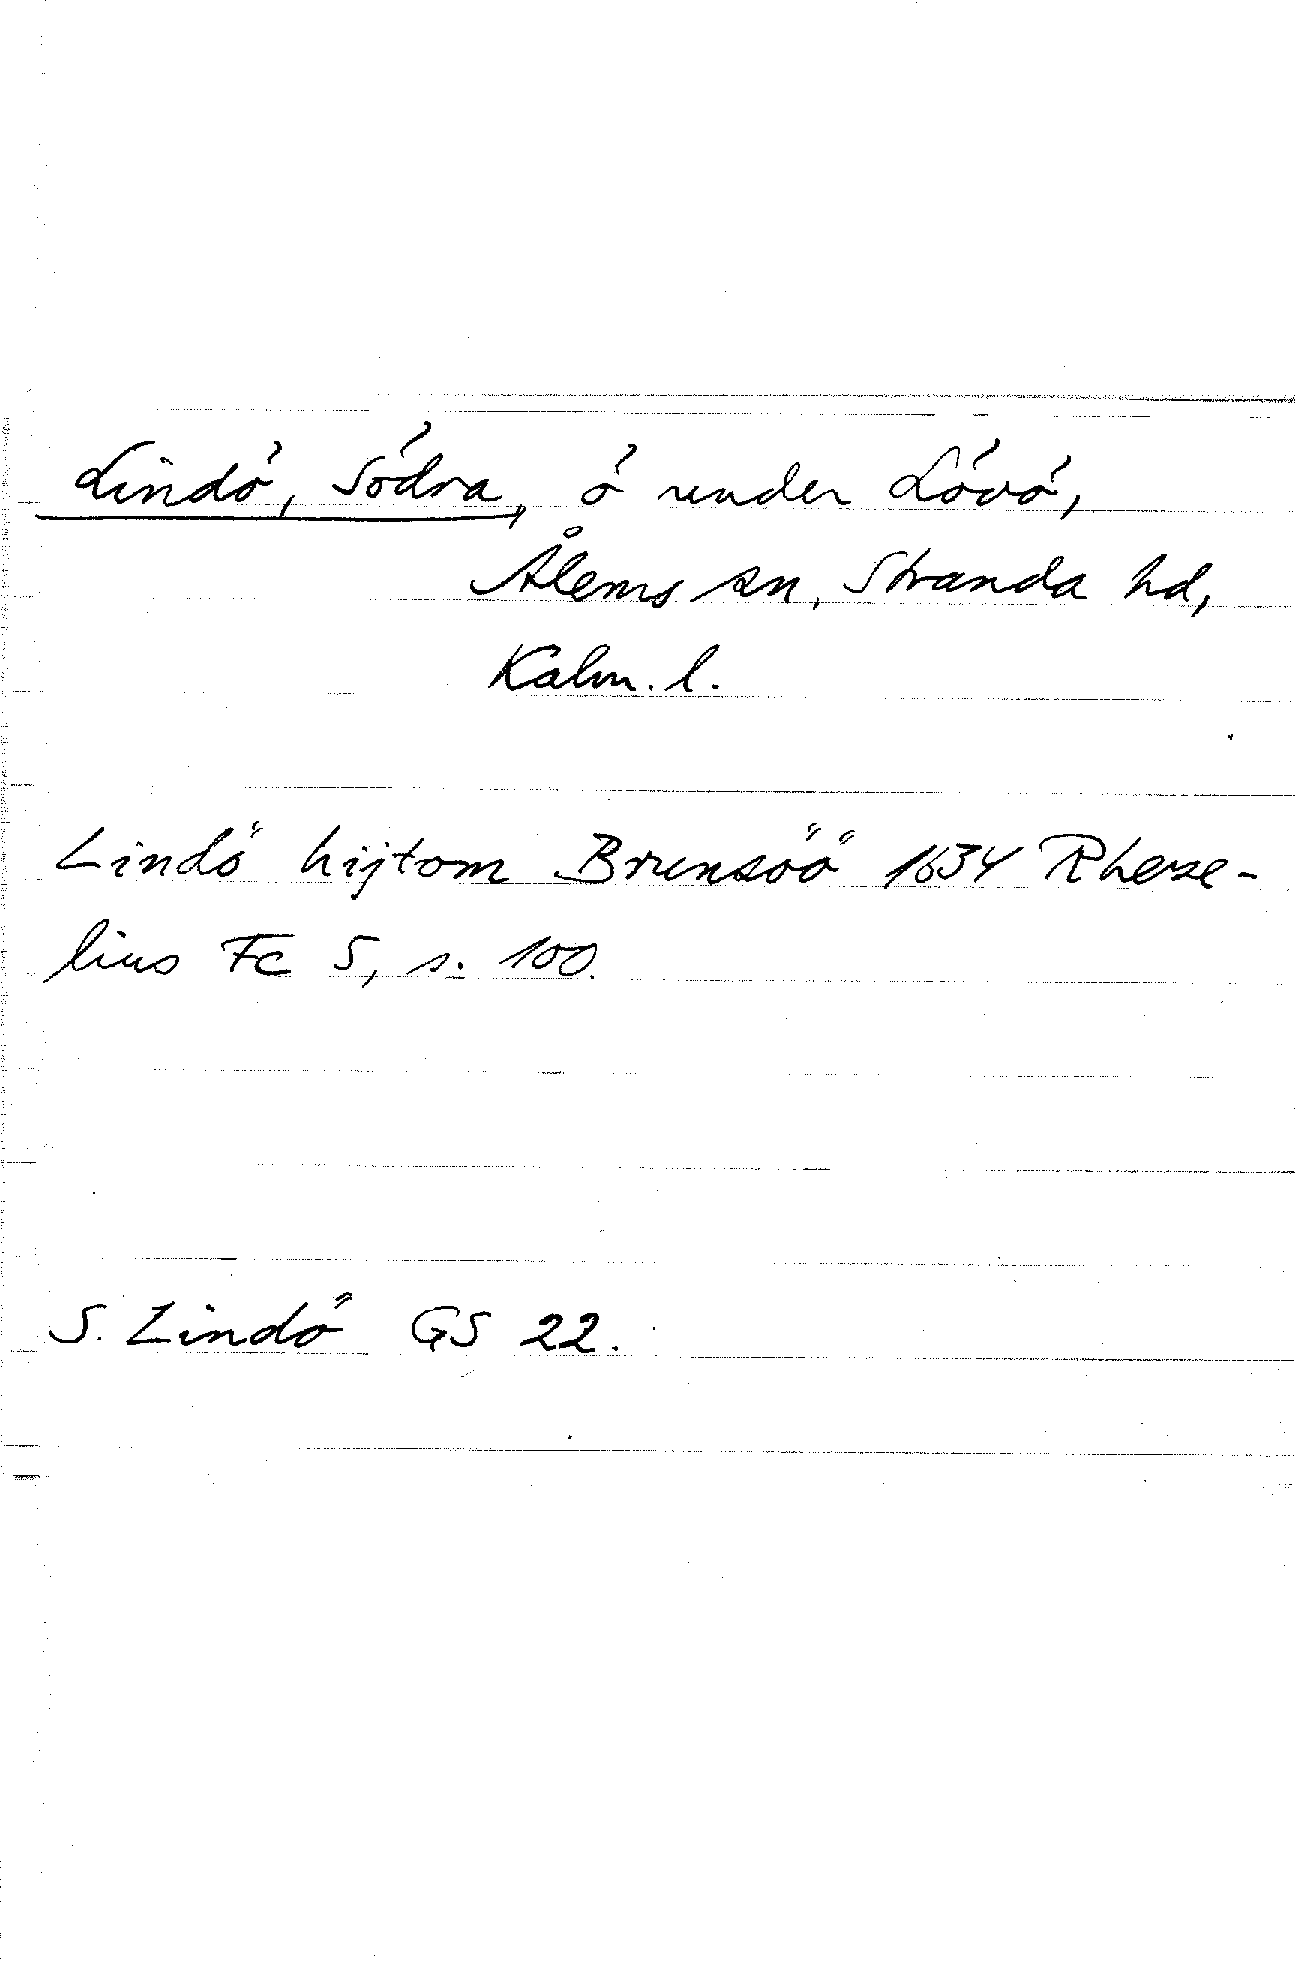 Lindö, Södra, ö under Lövö,
Ålems sn, Stranda hd,
Kalm. l.
Lindö hijtom Brunsöö 1634 Rhese-
lius Fc 5, s. 100.
S. Lindö GS 22.